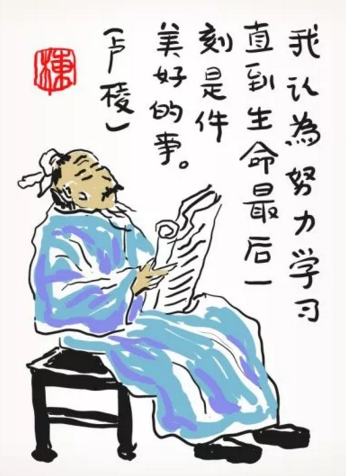 我认為努力学习
直到生命最后一
刻是件
美好的事。
(卢梭)